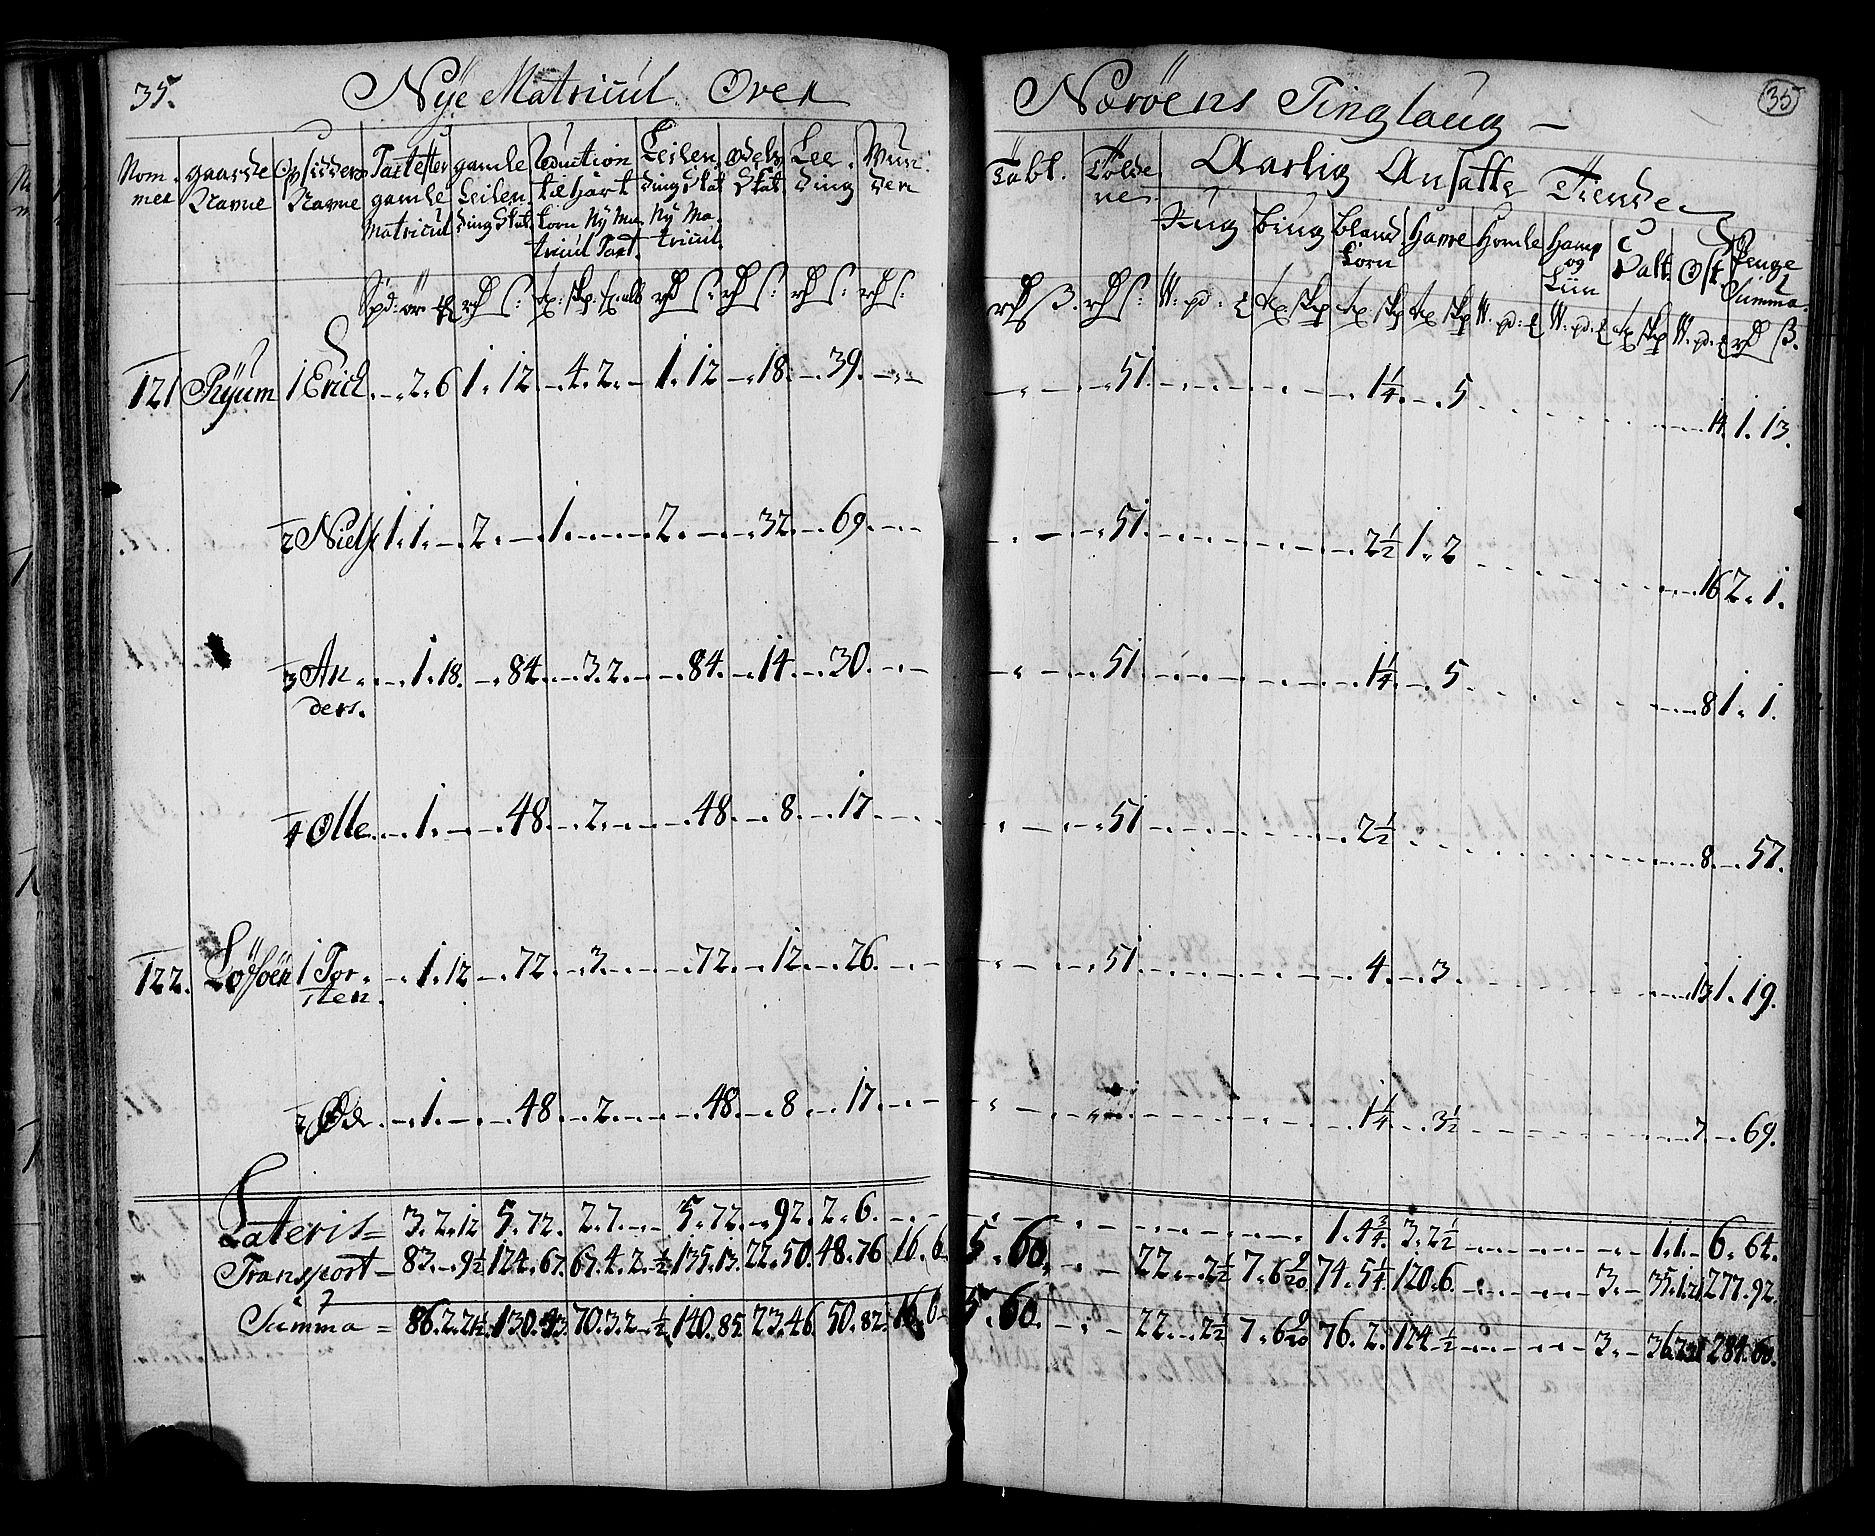 35. Nÿe Matricul Over Nærøens Tinglaug – 35
Nom- mer | gaarde Navne | Opsidders Navne | Taxt efter gamle Matricul | gamle Leilen- dingskat | Reduction til hart korn Nÿ Ma- tricul Taxt. | Leilen- dingskat Nÿ Ma- tricul | Odels Skat | Lee- ding | | Tübt. | | Aarlig Ansatte Tiende
Rug | Bÿug | bland korn | Havre | Homle | Hamp og Liin | Salt | Ost | Penge Summa
121 Rÿum 1 Erich. – „ 2. 6 | 1. 12. | – 4. 2. – | 1. 12 | – 18. | – 39. | – „ – | – „ – | 51. | 1¼. | – 5 | 14. | 1. 13.
2 Niels 1. 1. – | 2. – | 1. – – | 2. – | – 32. | – 69. | – „ – | 51. | 2½ | 1. 2 | 16 | 2. 1.
3 An- – 1. 18. | – 84. | – 3. 2. – | – 84. | – 14. | – 30. | – „ – | 51. | 1¼ | – 5 | 8 | 1. 1.
ders.
4 Olle. – 1. – | – 48. | – 2. – | – 48. | – 8. | – 17. | 51 | 2½ | 8. | – 57.
122. 1 Tor- – 1. 12 | – 72. | – 3. – | – 72. | – 12. | – 26. | 51. | 4. | – 3. | 13 | 1. 19.
sten.
2 – 1. – | – 48. | – 2. – | – 48. | – 8. | – 17. | 1¼ | – 3½ | 7. | – 69.
Lateris = 3. 2. 12 | 5. 72. | 2. 7. – | 5. 72. | – 92. | 2. 6. | 1. 4¾. | 3. 2½ | 1. 1. – | 6. 64.
Transport = 83. – 9½ | 124. 67. | 67. 4. 2. ½ | 135. 13. | 22. 50. | 48. 76 | 16. 6. | 5. 60. | 22. – 2½ | 7. 6 9/20 | 74. 5¼ | 120. 6. | 3. – | 35. 1. 21 | 277. 92.
Summa = 86. 2. 21½. | 130. 43. | 70. 3. 2. ½ | 140. 85 | 23. 46. | 50. 82. | 16. 6 | 5. 60. | 22. – 2½ | 7. 6 9/20 | 76. 2. | 124 ½ | 3. – | 36. 2. 21 | 284. 60.